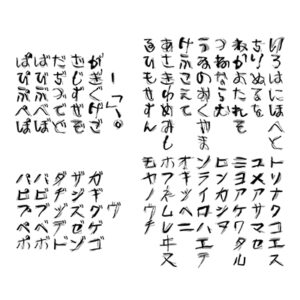 いろはにほへと
ちりぬるを
わかよたれそ
つねならむ
うゐのおくやま
けふこえて
あさきゆめみし
ゑひもせすん
トリナクコエス
ユメサマセ
ミヨアケワタル
ヒンカシヲ
ソライロハエテ
オキツヘニ
ホフネムレヰヌ
モヤノウチ
がぎぐげご
ざじずぜぞ
だぢづでど
ばびぶべぼ
ぱぴぷぺぽ
ヴ
ガギグゲゴ
ザジズゼゾ
ダヂヅデド
バビブベボ
パピプペポ